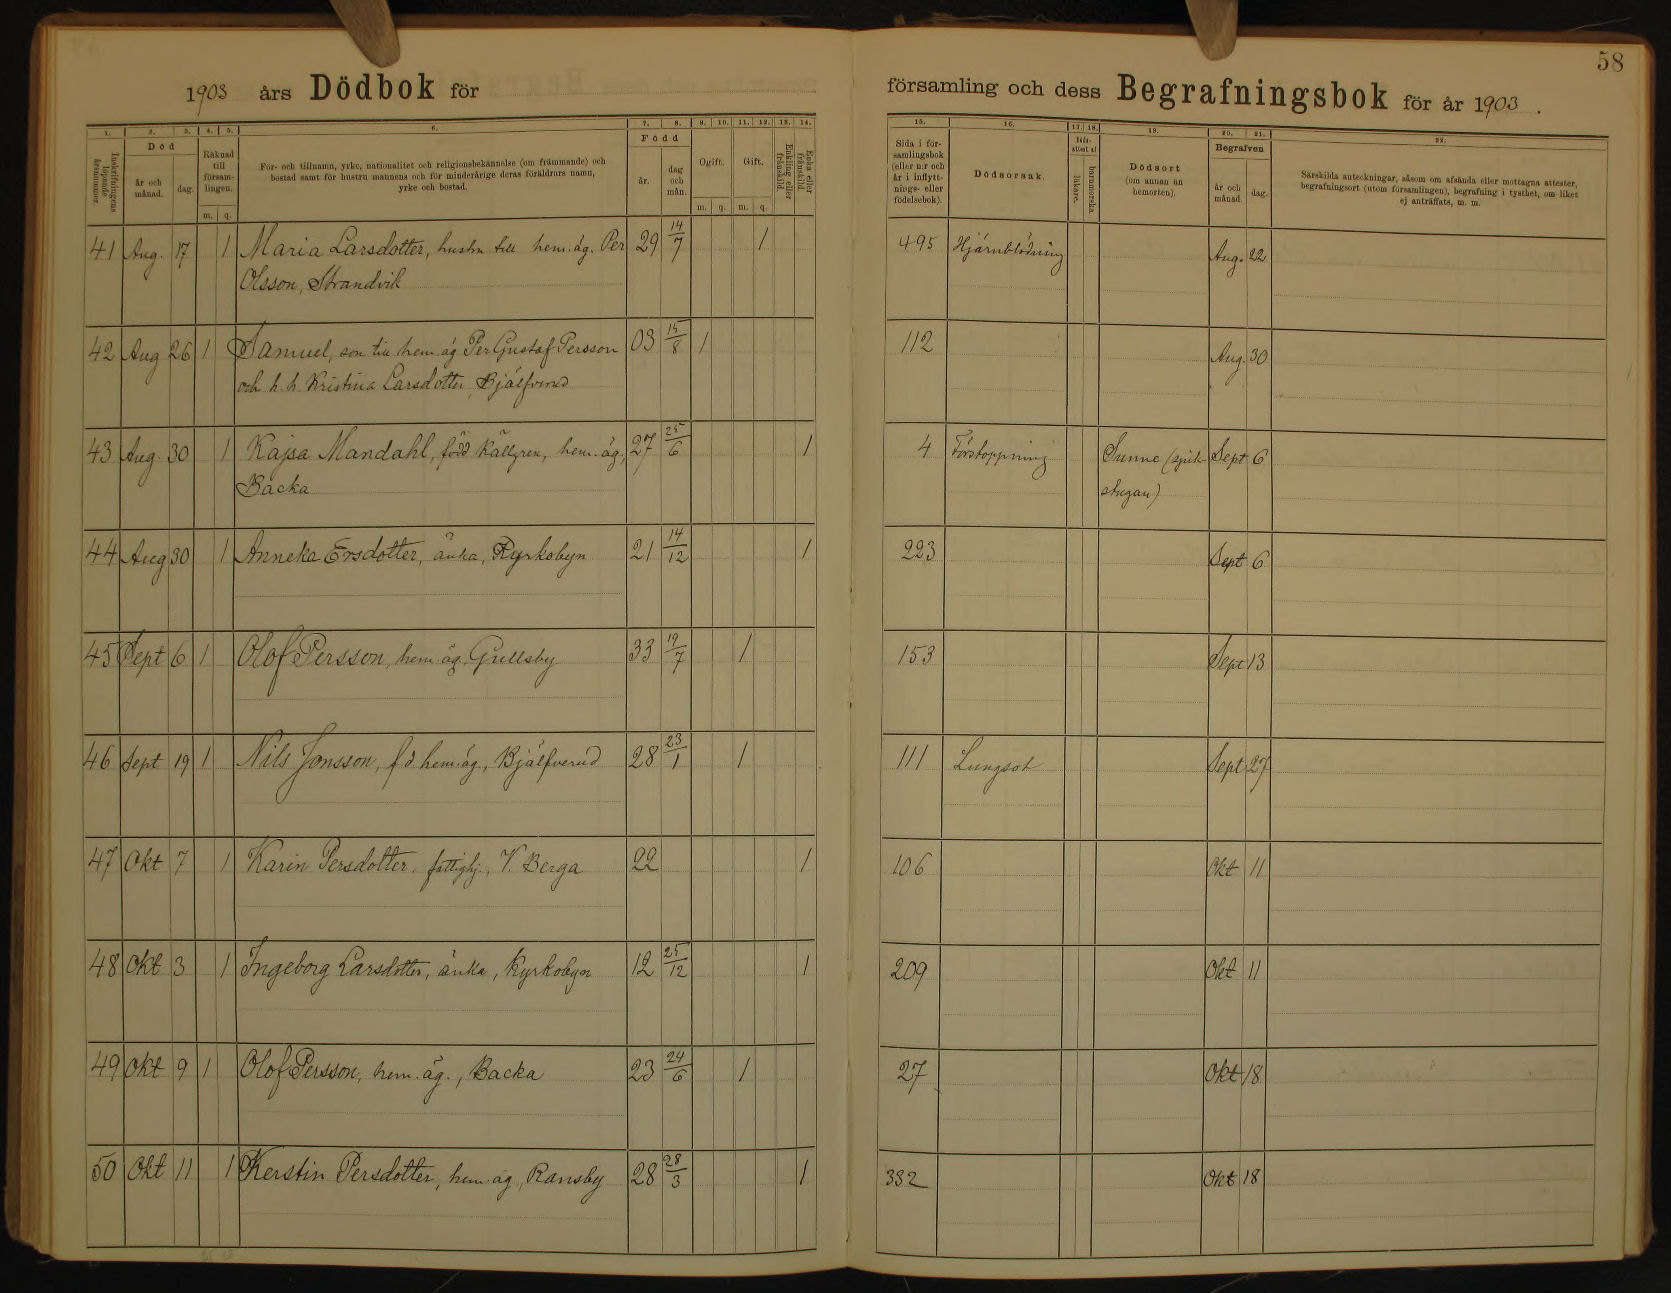 58
1903 års Dödbok för
församling och dess Begrafningsbok för år 1903.
1. 2. 3. 4. 5. 6. 7. 8. 9. 10. 11. 12. 13. 14.
15. 16. 17. 18. 19. 20. 21. 22.
Inskrifningens löpande årsnummer.
Död
år och månad.
dag.
Räknad till församlingen.
m. q.
För- och tillnamn, yrke, nationalitet och religionsbekännelse (om främmande) och
bostad samt för hustru mannens och för minderårige deras föräldrars namn,
yrke och bostad.
Född
år.
dag och mån.
Ogift. Gift.
m. q. m. q.
Enkling eller frånskild.
Enka eller frånskild.
Sida i för-
samlingsbok
(eller n:r och
år i inflytt-
nings- eller
födelsebok).
Dödsorsak.
läkare.
barnmorska.
Dödsort
(om annan än
hemorten).
Begrafven
år och månad.
dag.
Särskilda anteckningar, såsom om afsända eller mottagna attester,
begrafningsort (utom församlingen), begrafning i tysthet, om liket
ej anträffats, m. m.
41 Aug. 17 1 Maria Larsdotter, hustru till hem.äg. Per 29 14/7 1 495 Hjärnblödning Aug. 22
Olsson, Strandvik
42 Aug 26 1 Samuel, son till hem.äg Per Gustaf Persson 03 15/8 1 112 Aug. 30
och h. h. Kristina Larsdotter, Bjälfverud
43 Aug. 30 1 Kajsa Mandahl, född Källgren, hem.äg., 27 25/6 1 4 Förstoppning Sunne (sjuk- Sept 6
Backa stugan)
44 Aug 30 1 Anneka Ersdotter, änka, Kyrkobyn 21 14/12 1 223 Sept 6
45 Sept 6 1 Olof Persson, hem.äg. Gullsby 33 19/7 1 153 Sept 13
46 Sept 19 1 Nils Jonsson, f d hem.äg., Bjälfverud 28 23/1 1 111 Lungsot Sept 27
47 Okt 7 1 Karin Persdotter, fattighj., V. Berga 22 1 106 Okt 11
48 Okt 3 1 Ingeborg Larsdotter, änka, Kyrkobyn 12 25/12 1 209 Okt 11
49 Okt 9 1 Olof Persson, hem.äg., Backa 23 24/6 1 27 Okt 18
50 Okt 11 1 Kerstin Persdotter, hem.äg, Ransby 28 28/3 1 332 Okt 18